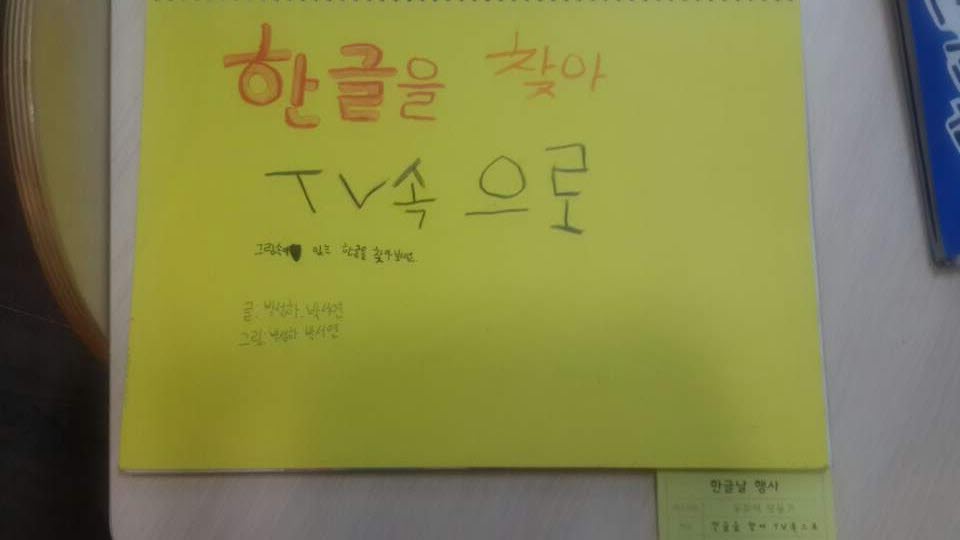 한글을 찾아
TV속으로
그림속에 있는 한글을 찾아보세요.
글: 박성하, 박서연
그림: 박성하 박서연
한글날 행사
한글을 찾아 TV속으로